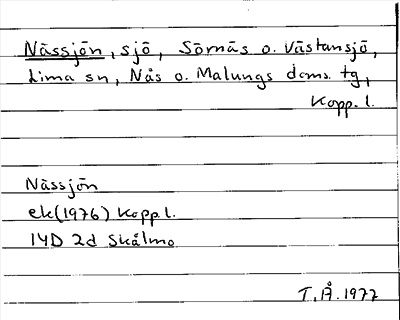 Nässjön, sjö, Sörnäs o. Västansjö,
Lima sn, Nås o. Malungs doms. tg,
Kopp. l.
Nässjön
ek(1976) Kopp. l.
14D 2d Skålmo
T.Å. 1977